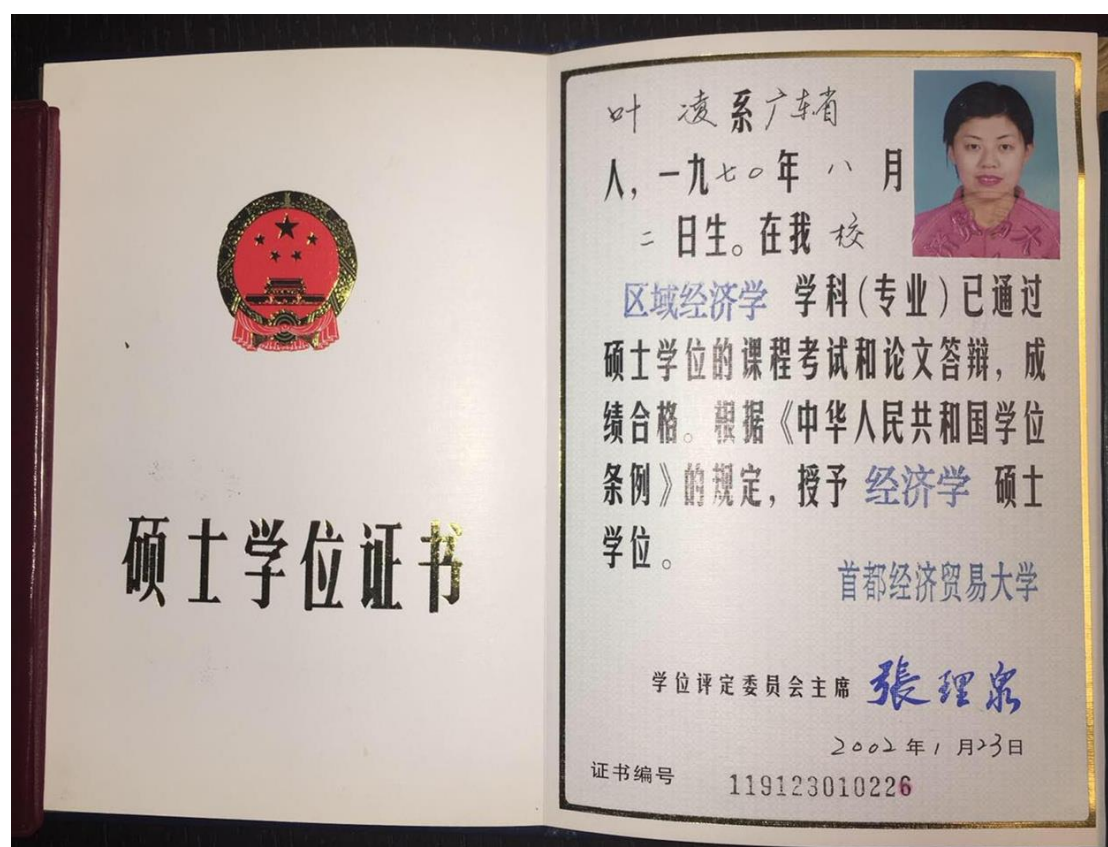 硕士学位证书
叶 凌系广东省
人,一九七〇年 八 月
二 日生。在我 校
区域经济学 学科(专业)已通过
硕士学位的课程考试和论文答辩,成
绩合格。根据《中华人民共和国学位
条例》的规定,授予 经济学 硕士
学位。
首都经济贸易大学
学位评定委员会主席 張理泉
2002 年 1 月 23 日
证书编号 119123010226